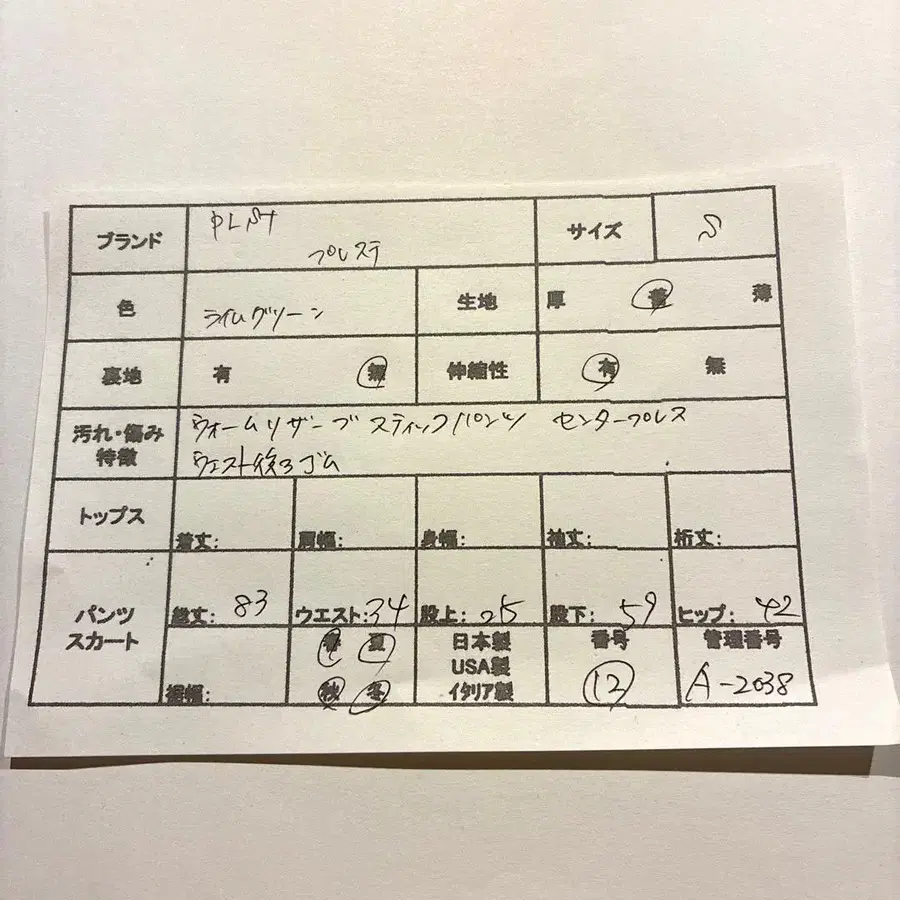 ブランド PLST サイズ S
プレステ
色 ライムグリーン 生地 厚 普 薄
裏地 有 無 伸縮性 有 無
汚れ・傷み ウォームリザーブ スティックパンツ センタープレス
特徴 ウエスト後ろゴム
トップス 着丈: 肩幅: 身幅: 袖丈: 裄丈:
パンツ 総丈: 83 ウエスト:34 股上: 25 股下: 59 ヒップ: 42
スカート 裾幅: 春 夏 日本製 番号 管理番号
USA製
秋 冬 イタリア製 12 A-2038